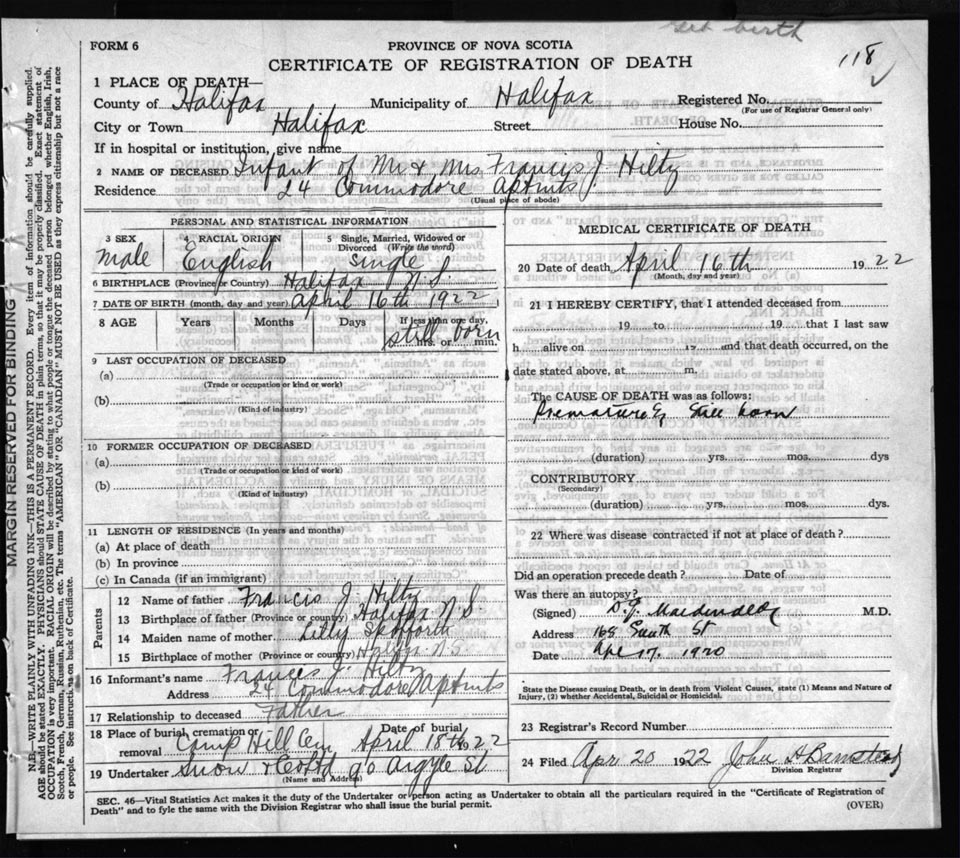 Still birth
118
FORM 6
PROVINCE OF NOVA SCOTIA
CERTIFICATE OF REGISTRATION OF DEATH
1 PLACE OF DEATH—
County of Halifax Municipality of Halifax Registered No.
(For use of Registrar General only)
City or Town Halifax Street House No.
If in hospital or institution, give name
2 NAME OF DECEASED Infant of Mr & Mrs Francis J. Hiltz
Residence 24 Commodore Aptmts
(Usual place of abode)
PERSONAL AND STATISTICAL INFORMATION
3 SEX RACIAL ORIGIN 5 Single, Married, Widowed or Divorced (Write the word)
male English single
6 BIRTHPLACE (Province or Country) Halifax N.S.
7 DATE OF BIRTH (month, day and year) April 16th 1922
8 AGE Years Months Days If less than one day, hrs. or min.
still born
9 LAST OCCUPATION OF DECEASED
(a)
(Trade or occupation or kind or work)
(b)
(Kind of industry)
10 FORMER OCCUPATION OF DECEASED
(a)
(Trade or occupation or kind of work)
(b)
(Kind of industry)
11 LENGTH OF RESIDENCE (In years and months)
(a) At place of death
(b) In province
(c) In Canada (if an immigrant)
Parents
12 Name of father Francis J. Hiltz
13 Birthplace of father (Province or country) Halifax N.S.
14 Maiden name of mother Lilly Spofforth
15 Birthplace of mother (Province or country) Halifx N.S.
16 Informant's name Francis J. Hiltz
Address 24 Commodore Aptmts
17 Relationship to deceased Father
18 Place of burial, cremation or removal Date of burial
Camp Hill Cem April 18th 22
19 Undertaker Snow & Co Ltd 90 Argyle St
(Name and Address)
MEDICAL CERTIFICATE OF DEATH
20 Date of death April 16th 1922
(Month, day and year)
21 I HEREBY CERTIFY, that I attended deceased from
19 to 19 that I last saw
h alive on 19 and that death occurred, on the
date stated above, at m.
The CAUSE OF DEATH was as follows:
Prematurely Still born
(duration) yrs. mos. dys
CONTRIBUTORY
(Secondary)
(duration) yrs. mos. dys
22 Where was disease contracted if not at place of death?
Did an operation precede death? Date of
Was there an autopsy?
(Signed) M.D.
Address 168 South St
Date Apr 17. 1920
State the Disease causing Death, or in death from Violent Causes, state (1) Means and Nature of
Injury, (2) whether Accidental, Suicidal or Homicidal.
23 Registrar's Record Number
24 Filed Apr 20 1922 John A Barnstead
Division Registrar
SEC. 46—Vital Statistics Act makes it the duty of the Undertaker or person acting as Undertaker to obtain all the particulars required in the "Certificate of Registration of
Death" and to fyle the same with the Division Registrar who shall issue the burial permit.
(OVER)
MARGIN RESERVED FOR BINDING
N.B.—WRITE PLAINLY WITH UNFADING INK—THIS IS A PERMANENT RECORD. Every item of information should be carefully supplied.
AGE should be stated EXACTLY. PHYSICIANS should STATE CAUSE OF DEATH in plain terms, so that it may be properly classified. Exact statement of
OCCUPATION is very important. RACIAL ORIGIN will be described by stating to what people or tongue the deceased person belonged whether English, Irish,
Scotch, French, German, Russian, Ruthenian, etc. The terms "AMERICAN" OR "CANADIAN" MUST NOT BE USED as they express citizenship but not a race
or people. See instructions on back of Certificate.